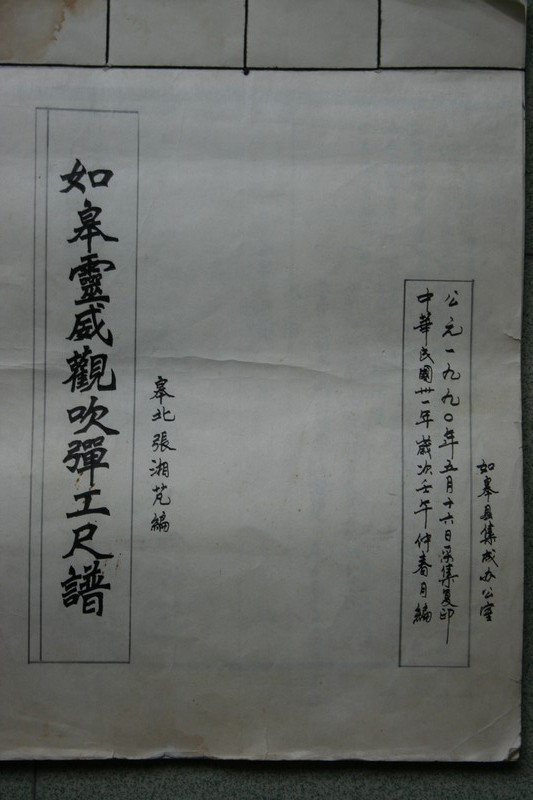 如皋县集成办公室
公元一九九〇年五月十六日采集复印
中華民國卅一年歲次壬午仲春月編
皋北張湘芃編
如皋靈威觀吹彈工尺譜